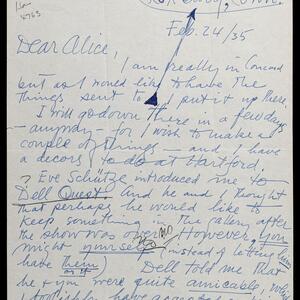 Roxbury, Conn.
Feb. 24/35
Dear Alice,
I am really in Concord
but as I would like to have the
things sent to put it up there.
I will go down there in a few days
– anyway – for I wish to make a
couple of things – and I have
a decors to do at Hartford.
Eve Schütze introduced me to
Dell Quest And he and I thought
that perhaps he would like to
keep something in the gallery after
the show was over. However, you
might yourself (instead of letting
have them
Dell told me that
he & you were quite amicable,